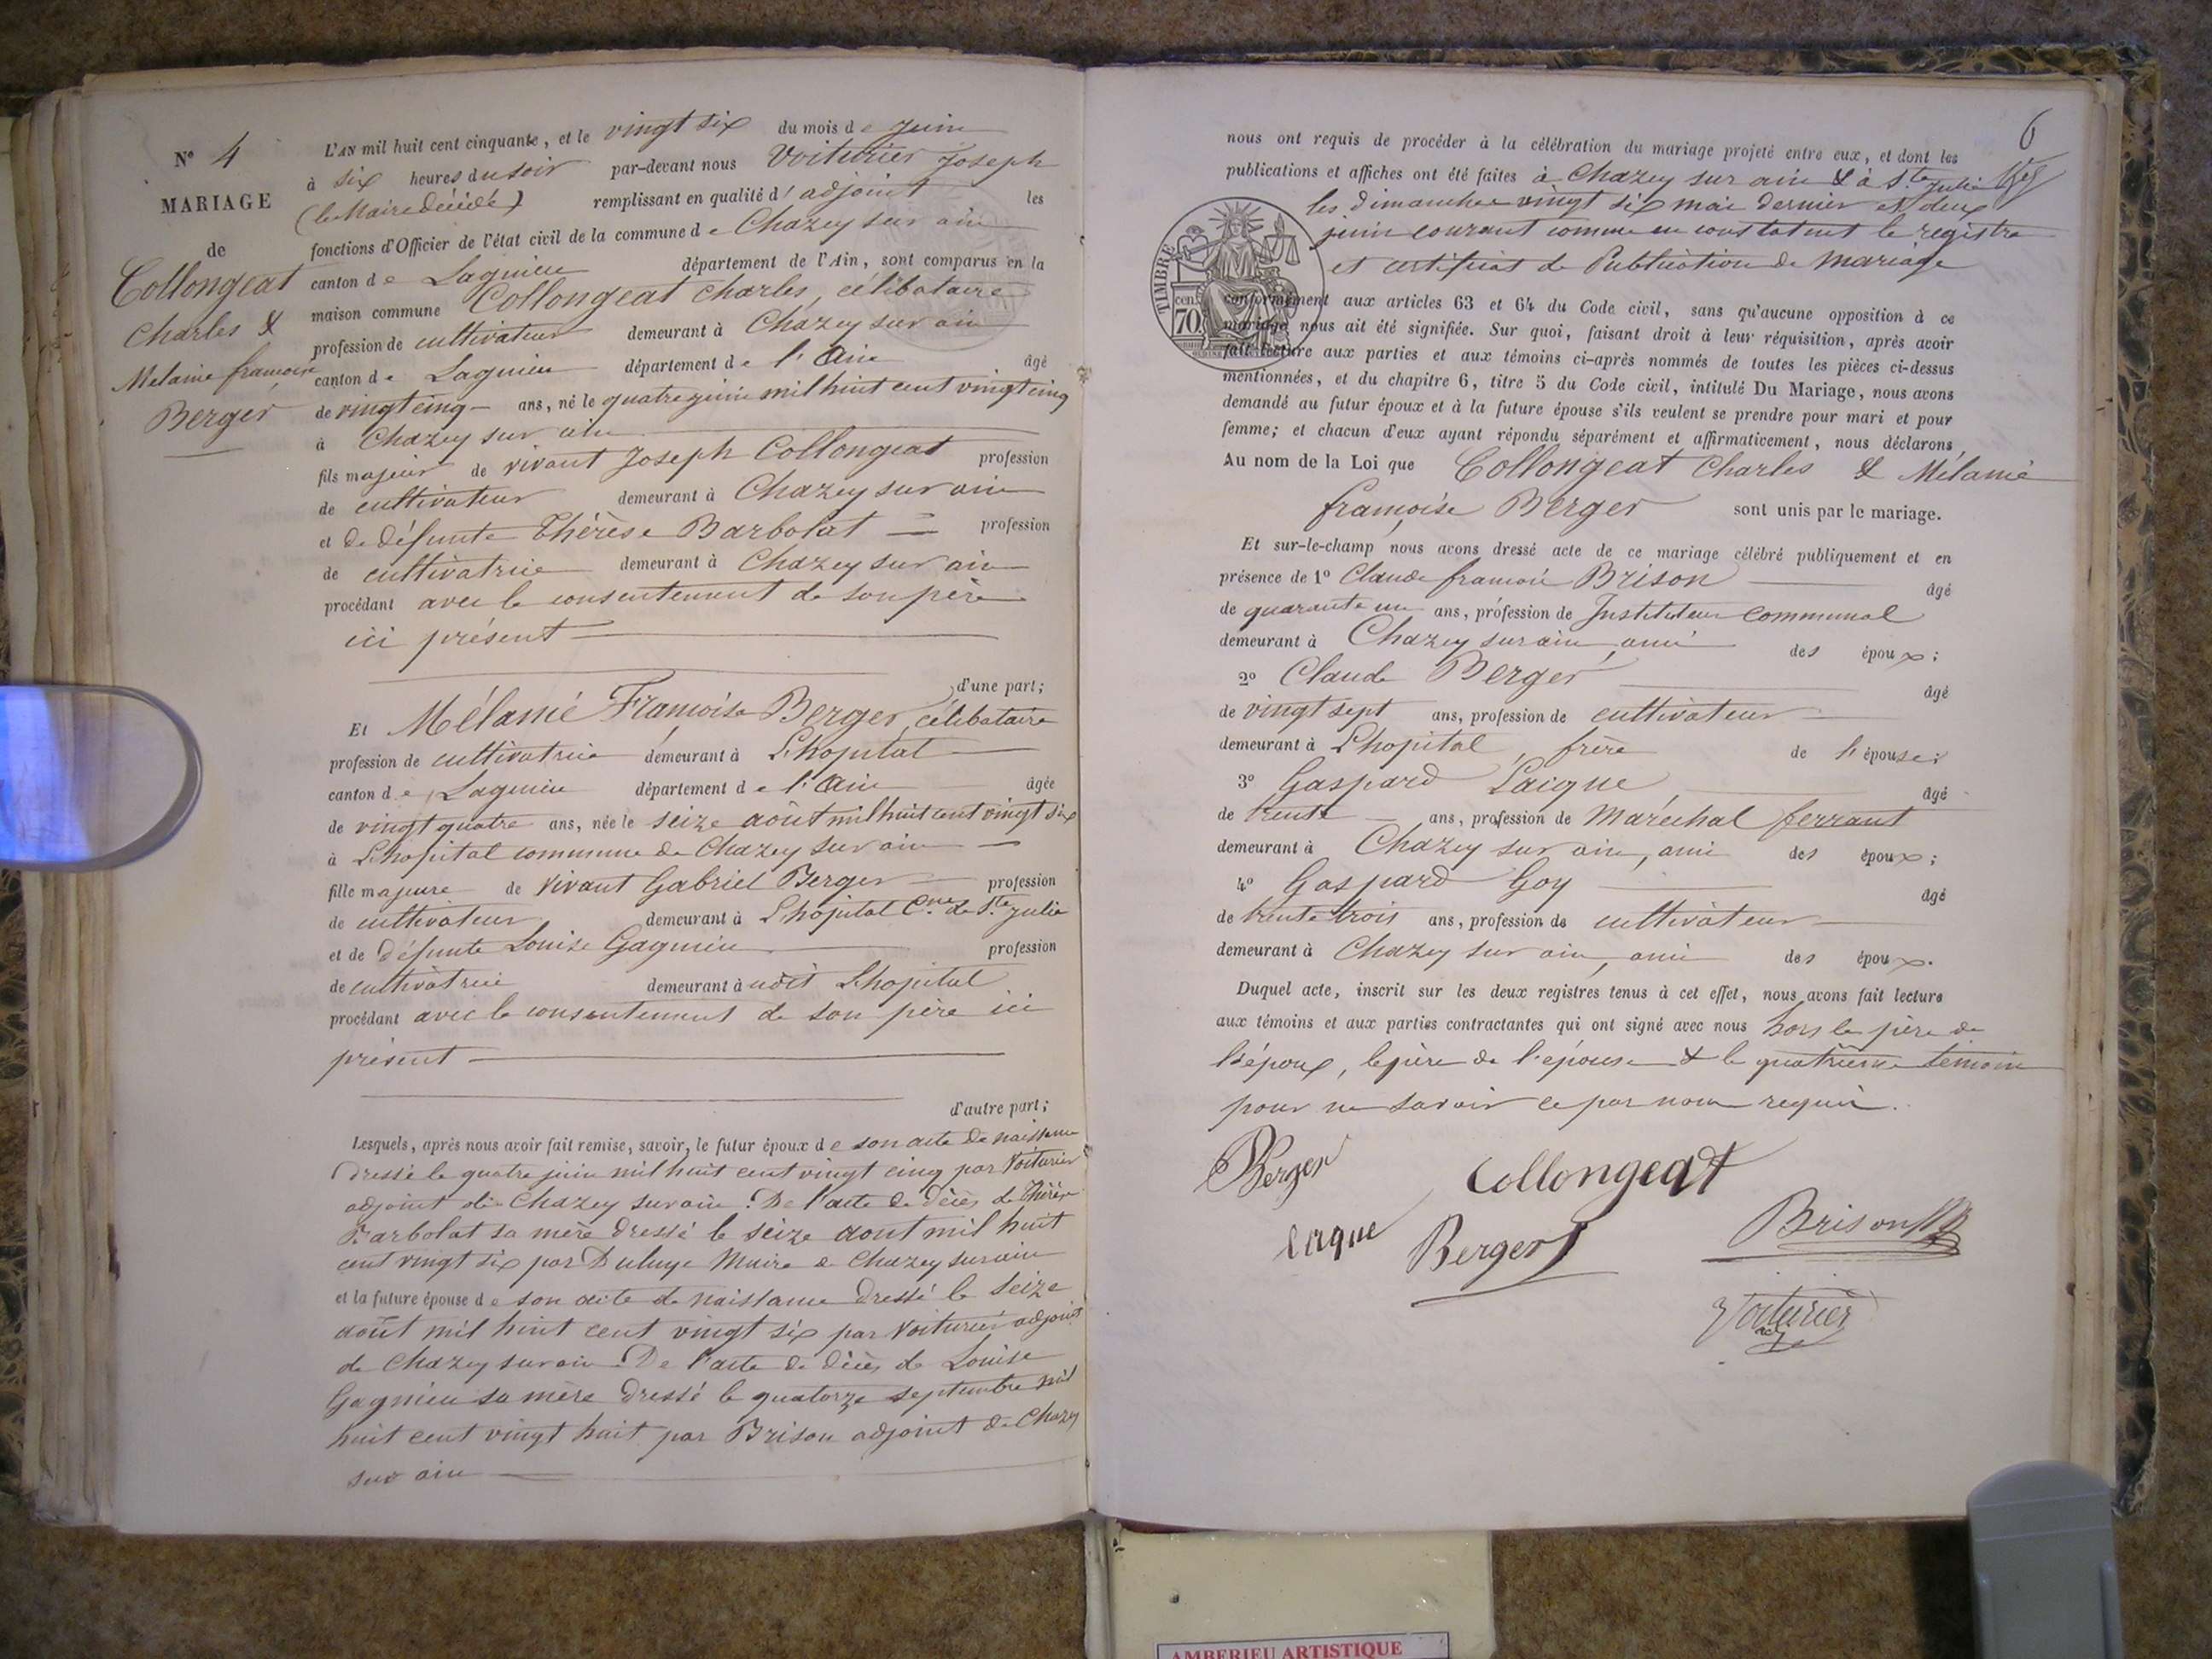 N° 4
MARIAGE
de
Collongeat
Charles &
Melanie françoise
Berger
L'AN mil huit cent cinquante, et le vingt six du mois de juin
à six heures du soir par-devant nous Voiturier Joseph
(le Maire décédé) remplissant en qualité d'adjoint les
fonctions d'Officier de l'état civil de la commune de Chazey sur ain
canton de Lagnieu département de l'Ain, sont comparus en la
maison commune Collongeat Charles, célibataire
profession de cultivateur demeurant à Chazey sur ain
canton de Lagnieu département de l'Ain âgé
de vingt cinq ans, né le quatre juin mil huit cent vingt cinq
à Chazey sur ain
fils majeur de vivant Joseph Collongeat profession
de cultivateur demeurant à Chazey sur ain
et de défunte Thérèse Barbolat profession
de cultivatrice demeurant à Chazey sur ain
procédant avec le consentement de son père
ici présent
d'une part;
Et Mélanie Françoise Berger, célibataire
profession de cultivatrice demeurant à Lhopital
canton de Lagnieu département de l'Ain âgée
de vingt quatre ans, née le seize août mil huit cent vingt six
à Lhopital commune de Chazey sur ain
fille majeure de vivant Gabriel Berger profession
de cultivateur demeurant à Lhopital Cne de Ste Julie
et de défunte Louise Gagnieu profession
de cultivatrice demeurant à udit Lhopital
procédant avec le consentement de son père ici
présent
d'autre part;
Lesquels, après nous avoir fait remise, savoir, le futur époux de son acte de naissance
dressé le quatre juin mil huit cent vingt cinq par Voiturier
adjoint de Chazey sur ain. De l'acte de décès de Thérèse
Barbolat sa mère dressé le seize aout mil huit
cent vingt six par Duluye Maire de Chazey sur ain
et la future épouse de son acte de naissance dressé le seize
août mil huit cent vingt six par Voiturier adjoint
de Chazey sur ain. De l'acte de décès de Louise
Gagnieu sa mère dressé le quatorze septembre mil
huit cent vingt huit par Brison adjoint de Chazey
sur ain
6
nous ont requis de procéder à la célébration du mariage projeté entre eux, et dont les
publications et affiches ont été faites à Chazey sur ain & à Ste Julie
les dimanches vingt six mai dernier et deux
juin courant comme en constatent le registre
et certificat de Publication de mariage
TIMBRE
cen
70
conformément aux articles 63 et 64 du Code civil, sans qu'aucune opposition à ce
mariage nous ait été signifiée. Sur quoi, faisant droit à leur réquisition, après avoir
fait lecture aux parties et aux témoins ci-après nommés de toutes les pièces ci-dessus
mentionnées, et du chapitre 6, titre 5 du Code civil, intitulé Du Mariage, nous avons
demandé au futur époux et à la future épouse s'ils veulent se prendre pour mari et pour
femme; et chacun d'eux ayant répondu séparément et affirmativement, nous déclarons,
Au nom de la Loi que Collongeat Charles & Mélanie
françoise Berger sont unis par le mariage.
Et sur-le-champ nous avons dressé acte de ce mariage célébré publiquement et en
présence de 1° Claude françois Brison âgé
de quarante un ans, profession de Instituteur communal
demeurant à Chazey sur ain, ami des époux;
2° Claude Berger âgé
de vingt sept ans, profession de cultivateur
demeurant à Lhopital, frère de l'épouse;
3° Gaspard Laique âgé
de trente ans, profession de Maréchal ferrant
demeurant à Chazey sur ain, ami des époux;
4° Gaspard Goy âgé
de trente trois ans, profession de cultivateur
demeurant à Chazey sur ain, ami des époux.
Duquel acte, inscrit sur les deux registres tenus à cet effet, nous avons fait lecture
aux témoins et aux parties contractantes qui ont signé avec nous hors le père de
l'époux, le père de l'épouse & le quatrième témoin
pour ne savoir ce par nous requis.
Berger
Collongeat
laque
Berger
Brison
Voiturier
adj
AMBERIEU ARTISTIQUE